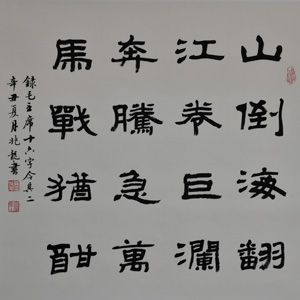 山倒海翻
江卷巨澜
奔腾急萬
馬戰猶酣
録毛主席十六字令其二
辛丑夏月兆龍書